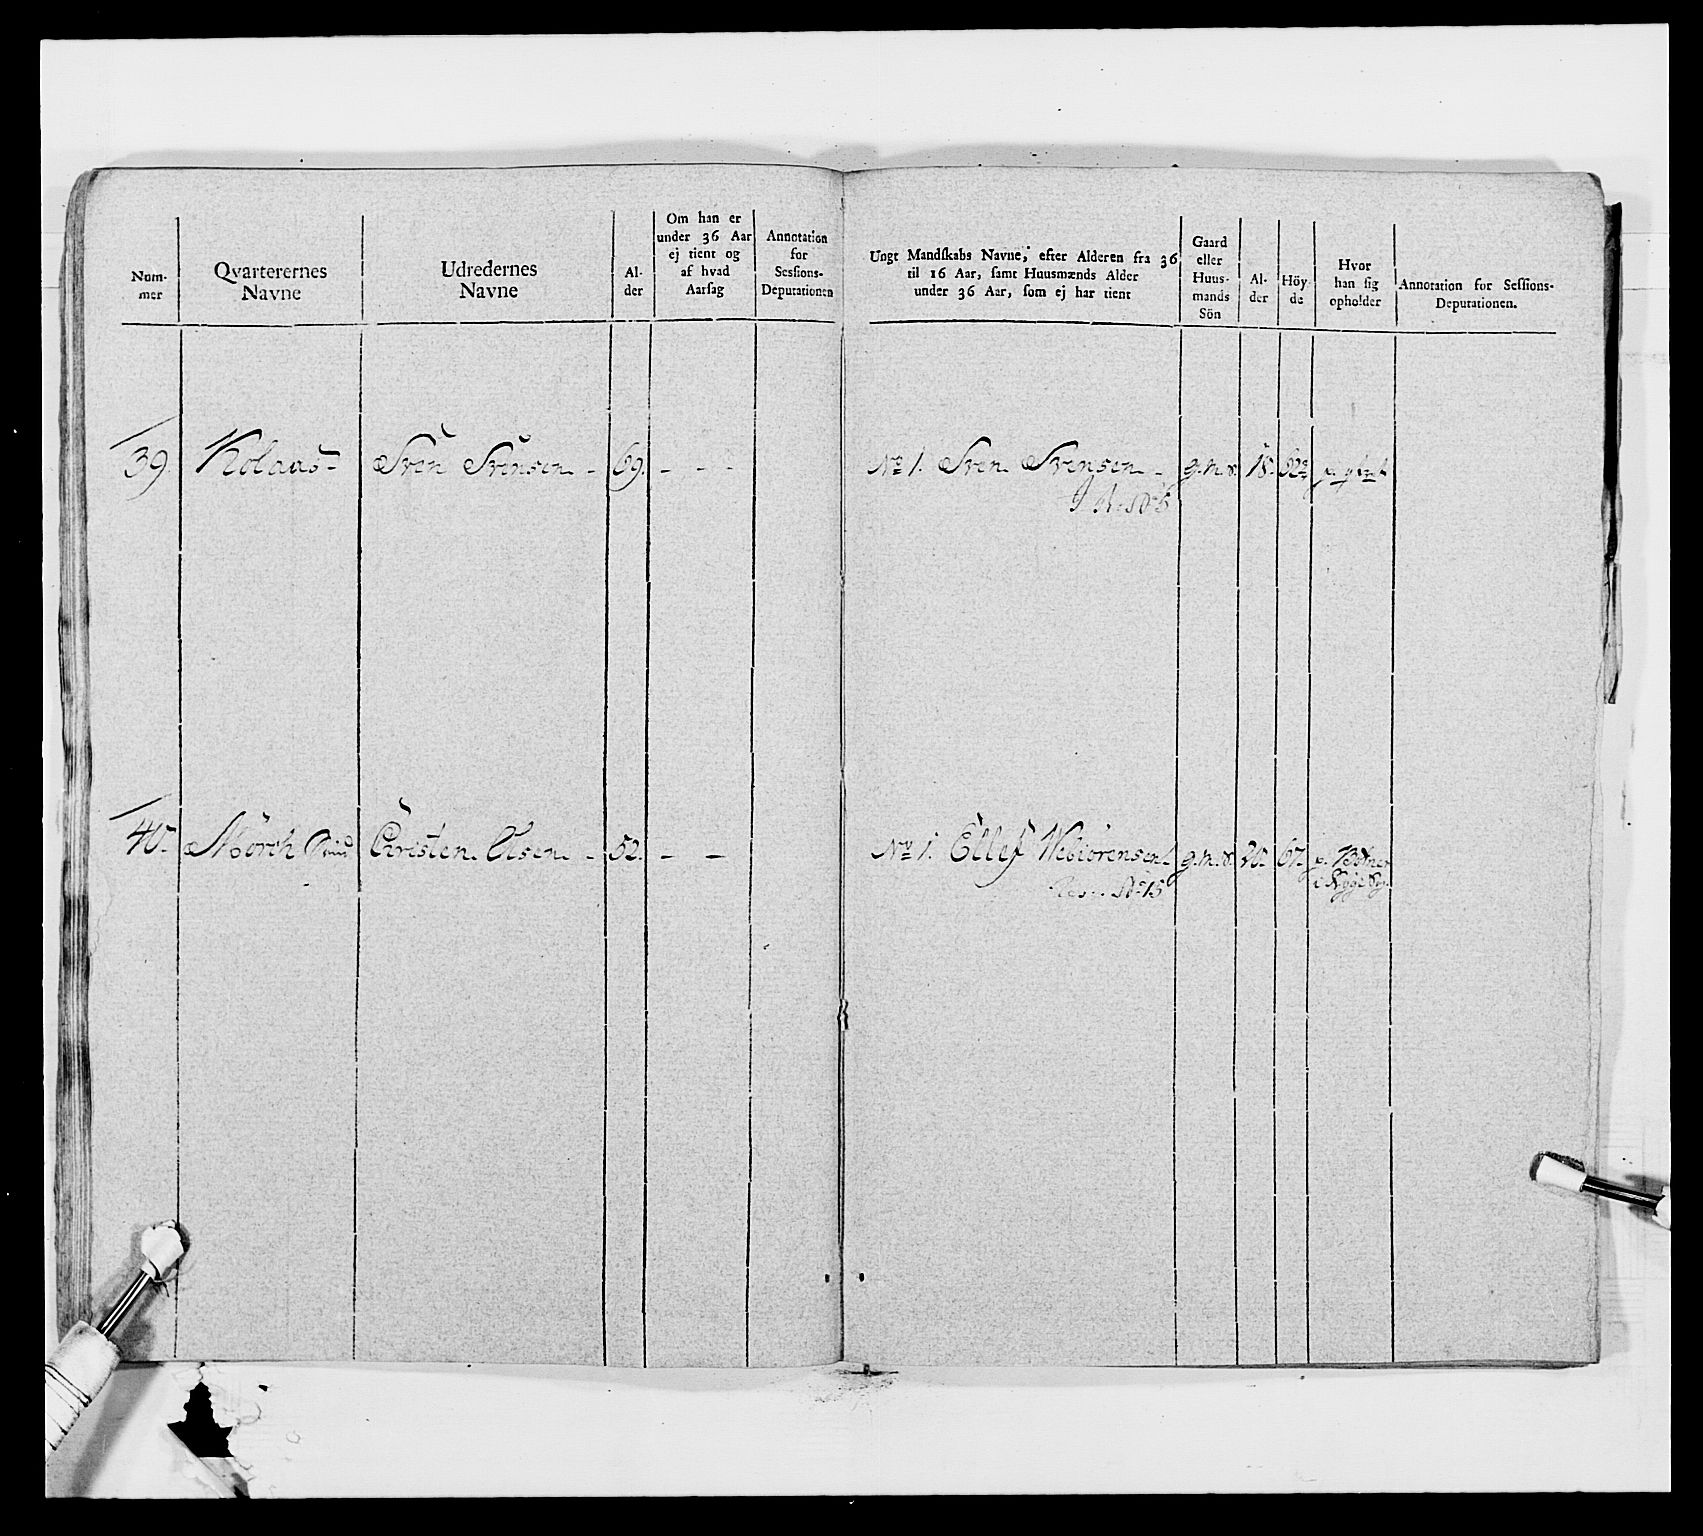 Num-
mer
Qvarterernes
Navne
Udredernes
Navne
Al-
der
Om han er
under 36 Aar
ej tient og
af hvad
Aarsag
Annotation
for
Sessions-
Deputationen
Ungt Mandskabs Navne, efter Alderen fra 36
til 16 Aar, samt Huusmænds Alder
under 36 Aar, som ej har tient
Gaard
eller
Huus-
mands
Sön
Al-
der
Höy-
de
Hvor
han sig
opholder
Annotation for Sessions-
Deputationen.
39. Kolaas- Sven Svensen - 69. - - -
No 1. Sven Svensen - g. m. s. 18.
40. Mörch Christen Olsen - 52. - -
No 1. Ellef g. m. s. 20. 67.